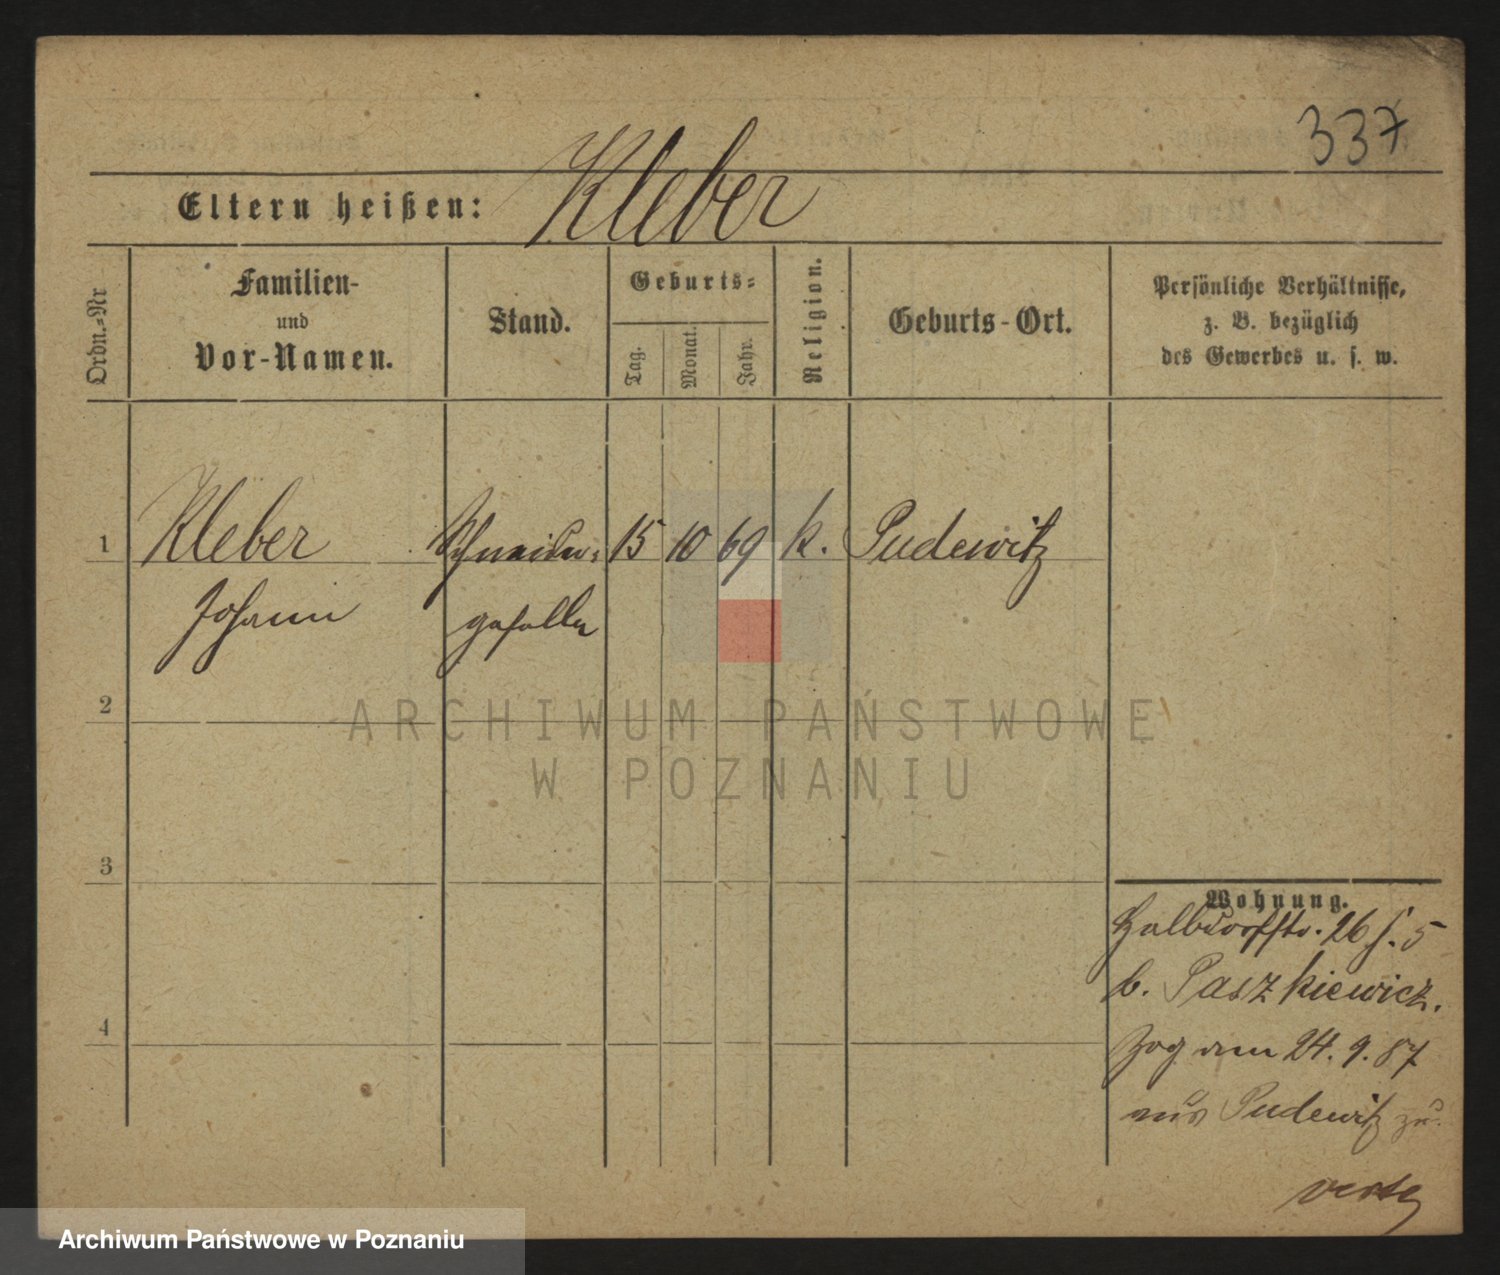 337
Eltern heißen: Kleber
Ordn.-Nr
Familien-
und
Vor-Namen.
Stand.
Geburts-
Tag.
Monat.
Jahr.
Religion.
Geburts-Ort.
Persönliche Verhältnisse,
z. B. bezüglich
des Gewerbes u. s. w.
1 Kleber Schneider- 15 10 69 k. Pudewitz
Johann geselle
2
3
4
ARCHIWUM PAŃSTWOWE
W POZNANIU
Wohnung.
Halbdorfstr. 26 5
b. Paszkiewicz.
Zog am 24. 9. 87
aus Pudewitz zu.
Archiwum Państwowe w Poznaniu